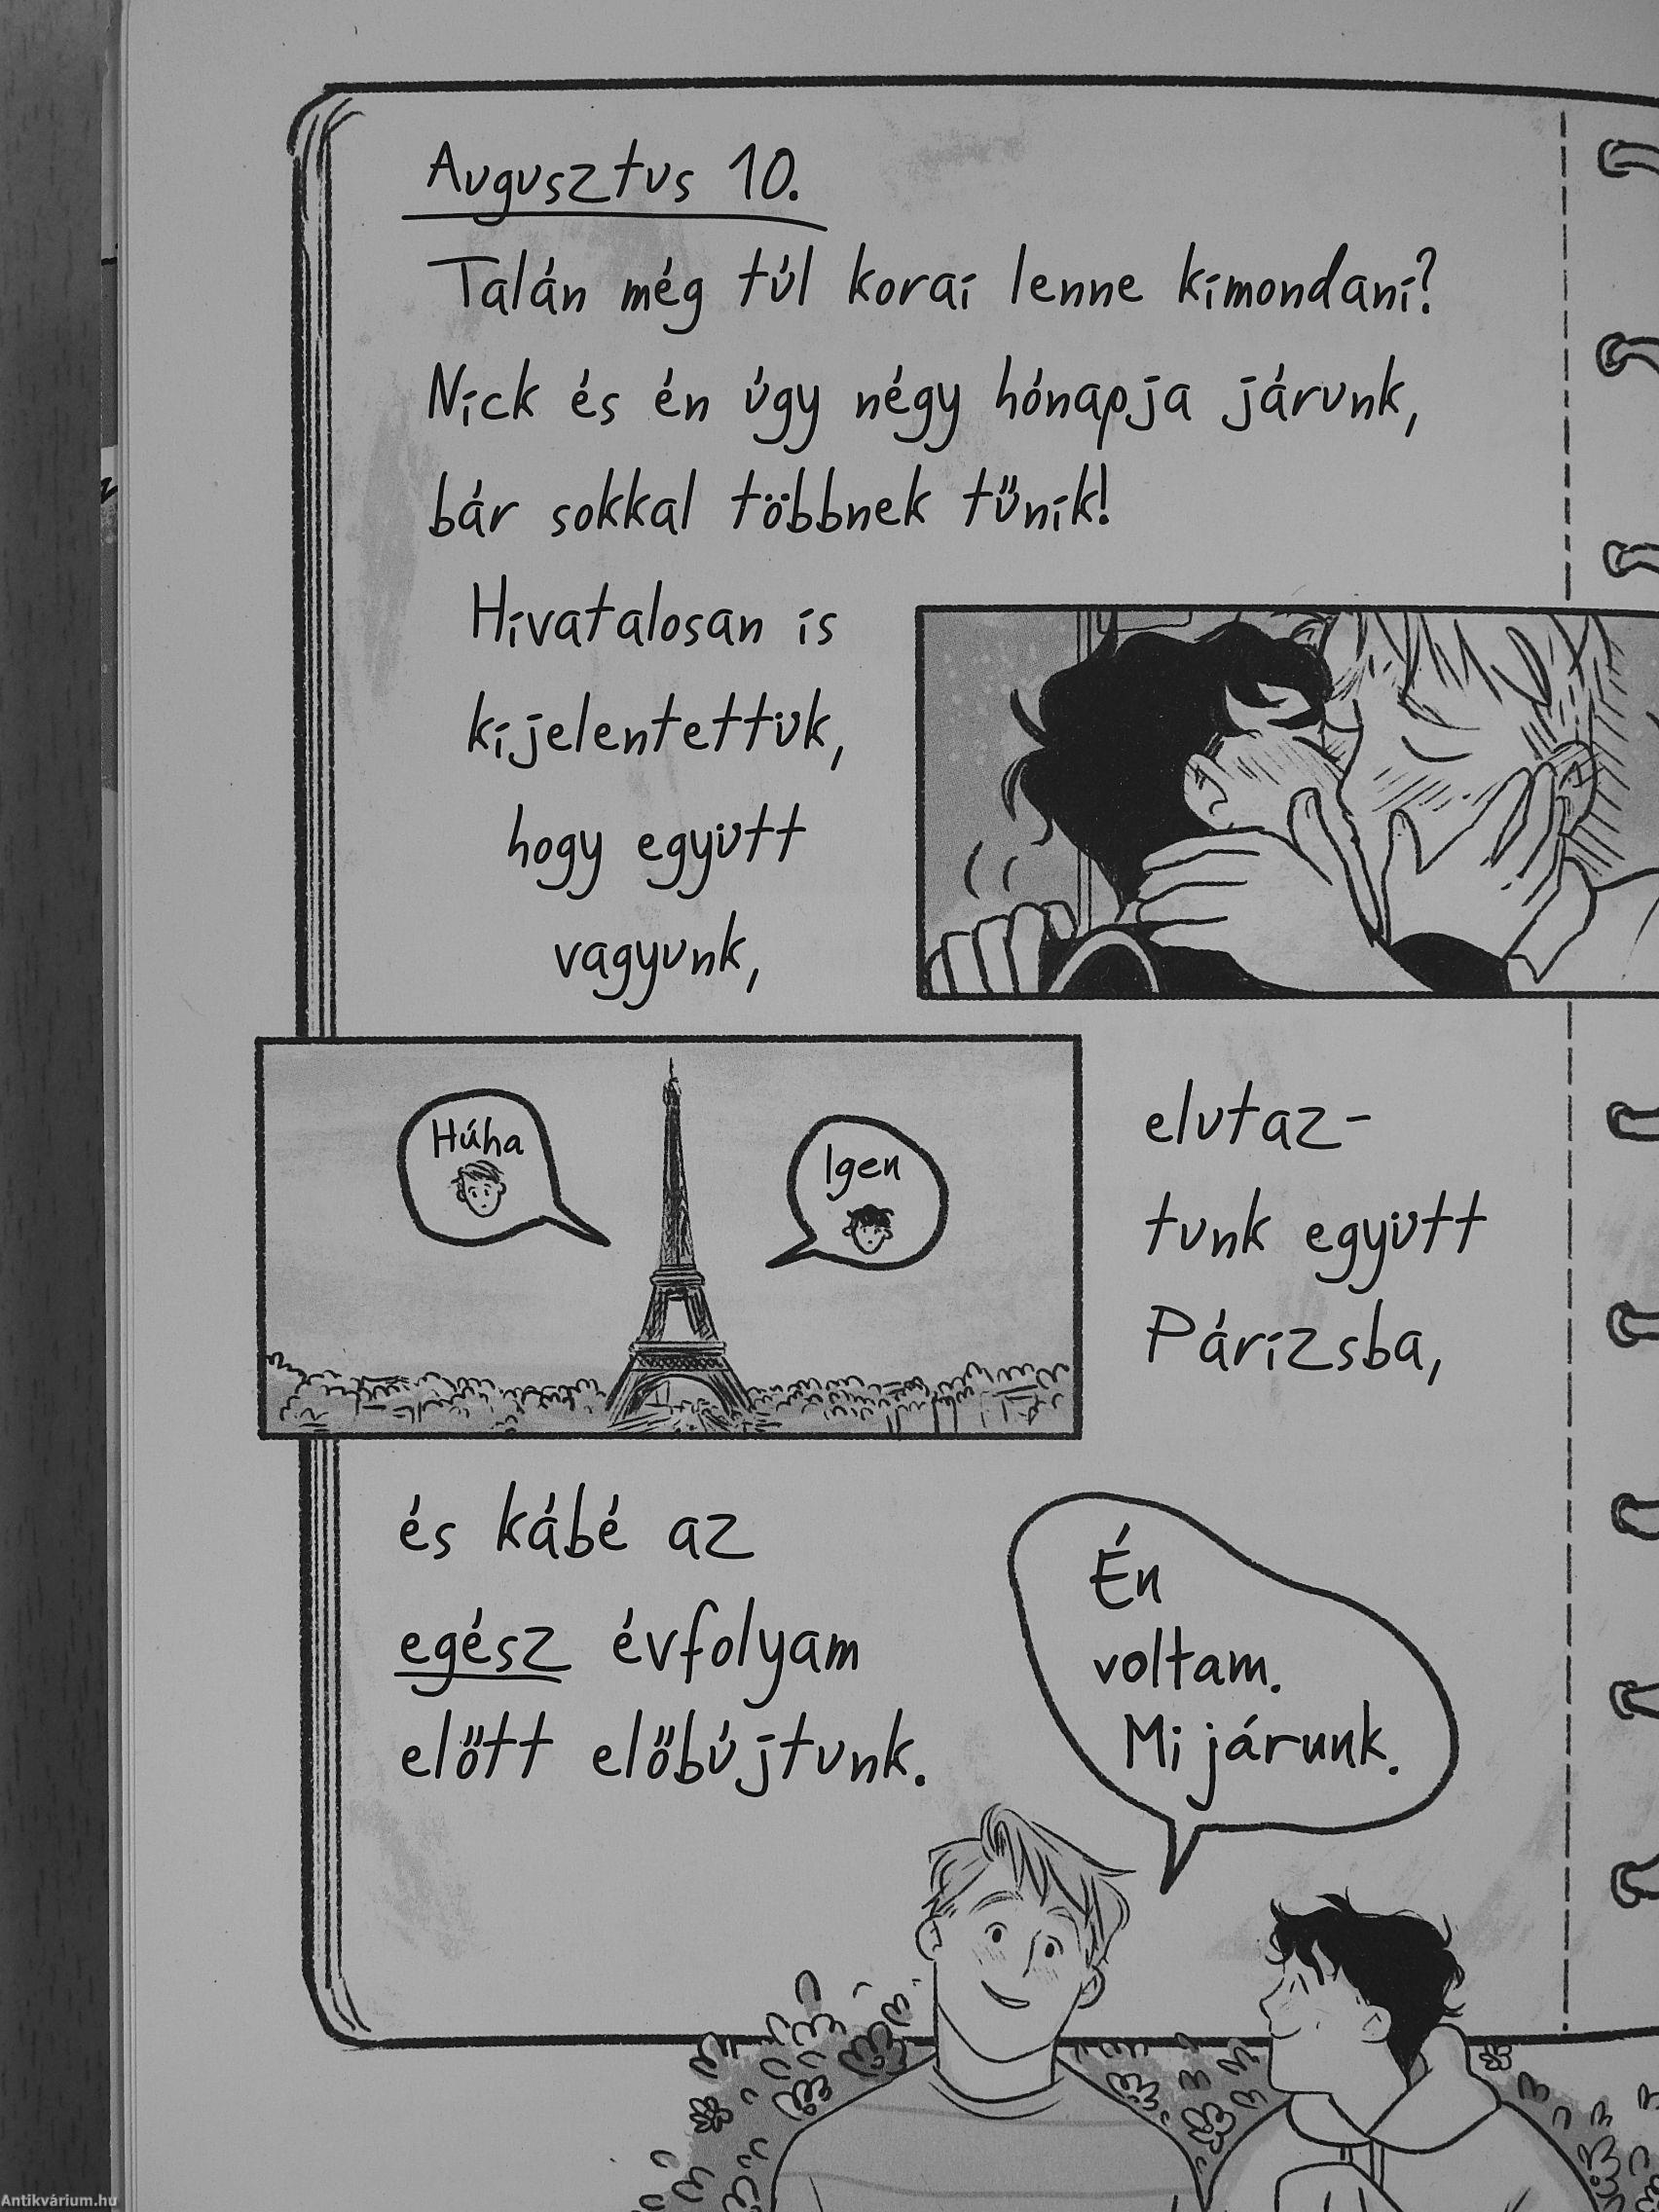 Augusztus 10.
Talán még túl korai lenne kimondani?
Nick és én úgy négy hónapja járunk,
bár sokkal többnek tűnik!
Hivatalosan is
kijelentettük,
hogy együtt
vagyunk,
Húha
Igen
elutaz-
tunk együtt
Párizsba,
és kábé az
egész évfolyam
előtt előbújtunk.
Én
voltam.
Mi járunk.
Antikvárium.hu